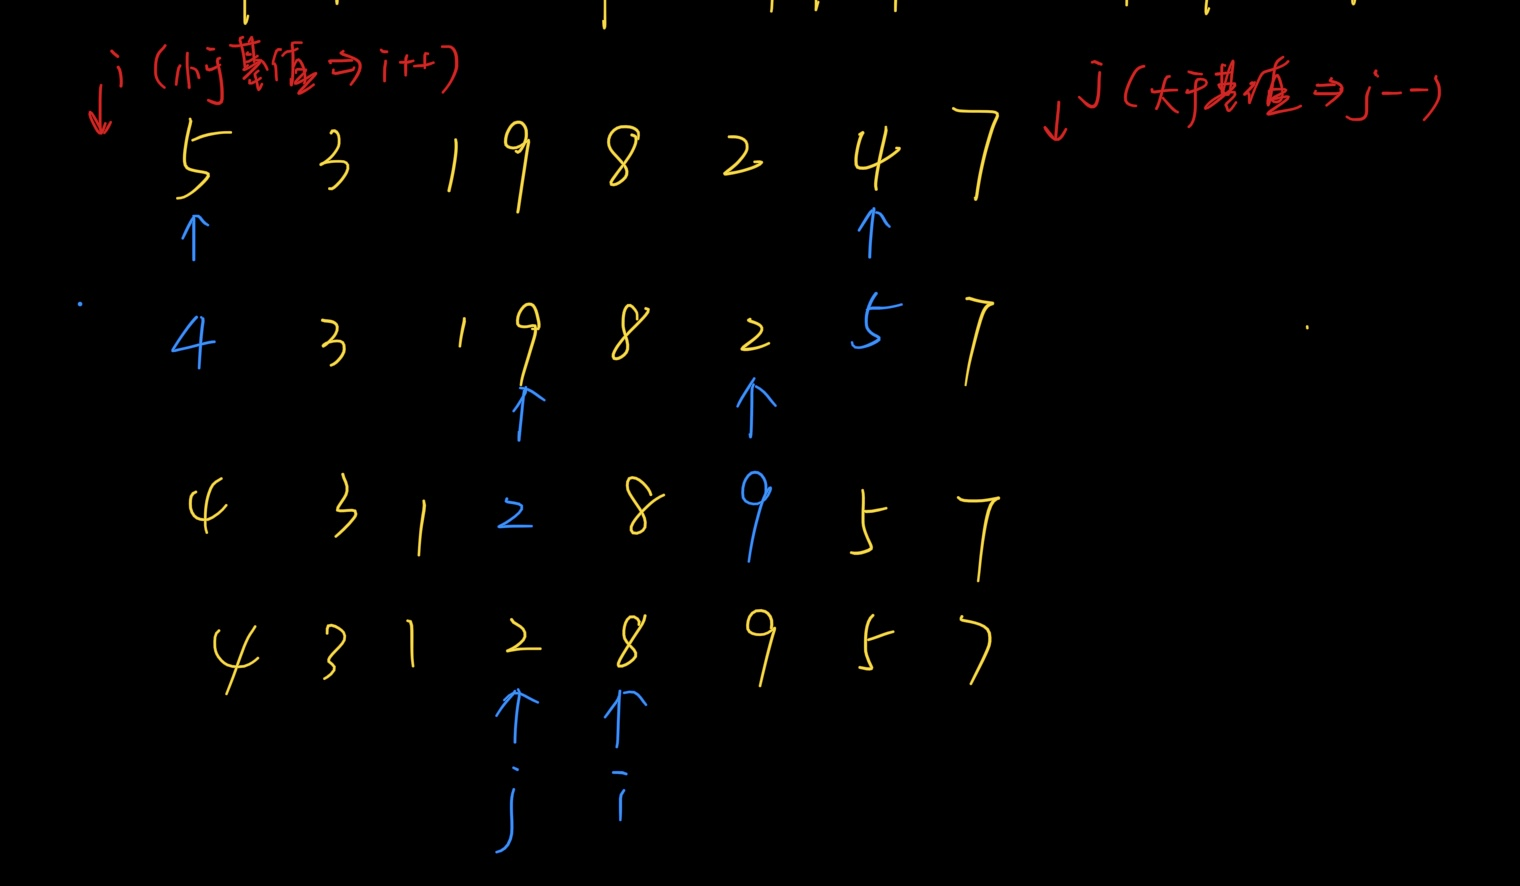 i (小于基值 ⇒ i++)
j (大于基值 ⇒ j--)
5 3 1 9 8 2 4 7
4 3 1 9 8 2 5 7
4 3 1 2 8 9 5 7
4 3 1 2 8 9 5 7
j i